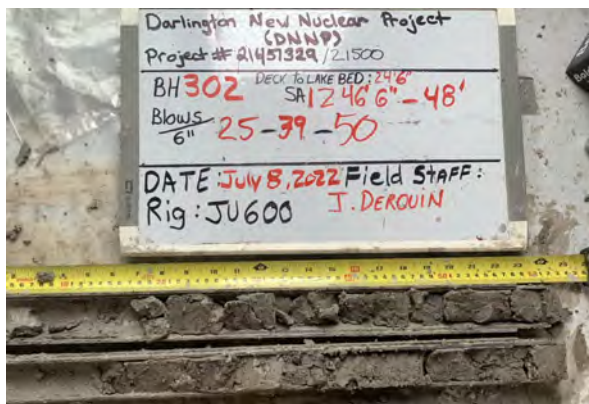 Darlington New Nuclear Project
(DNNP)
Project # 21457329/21500
BH 302 DECK TO LAKE BED: 24'6"
SA 12 46'6" - 48'
Blows/6" 25-39-50
DATE: July 8, 2022 Field STAFF:
Rig: JU600 J. DEROUIN